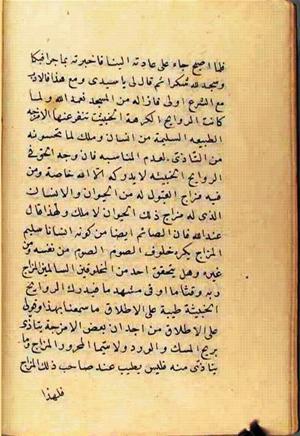 فلما اصبح جاء على عادته الينا فاخبرته بما جرا فبكا
وسجد لله شكرا ثم قال لي يا سيدي ومع هذا فالادب
مع الشرع اولى فازاله من المسجد فحمد الله ولما
كانت الروايح الكرهة الخبيثة تنفر عنها الامزجه
الطبيعه السليمة من انسان وملك لما تحسونه
من التاذي لعدم المناسبه فان وجه الحق في
الروايح الخبيثه لا يدركه الا الله خاصة ومن
فيه مزاج القبول له من الحيوان والانسان
الذى له مزاج ذلك الحيوان لا ملك ولهذا قال
عند الله فان الصائم ايضا من كونه انسانا سليم
المزاج يكره خلوف الصوم من نفسه ومن
غيره وهل يتحقق احد من المخلوقين السالمين المزاج
ربه وقتا ما او في مشهد ما فيدرك الروايح
الخبيثة طيبة على الاطلاق ما سمعنا بهذا وقولى
على الاطلاق من اجل ان بعض الامزجة يتاذى
بريح المسك والورد ولا سيما المحرور المزاج وما
يتاذى منه فليس بطيب عند صاحب ذلك المزاج
فلهذا